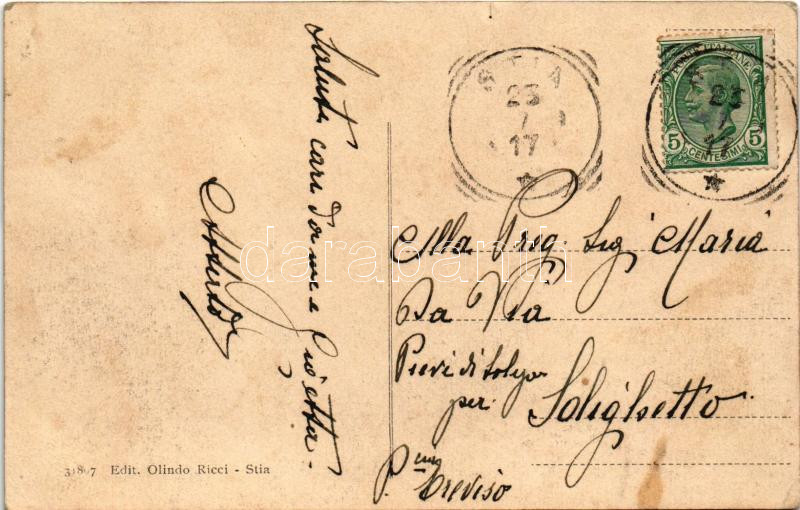 Saluti cari da me e Giretta.
Alberto
STIA
23
7
17
STIA
23
7
17
POSTE ITALIANE
5 5
CENTESIMI
Alla Preg. Sig Maria
Da Via
Pieve di Soligo
per Solighetto
P.
Treviso
31807 Edit. Olindo Ricci - Stia
darabanth